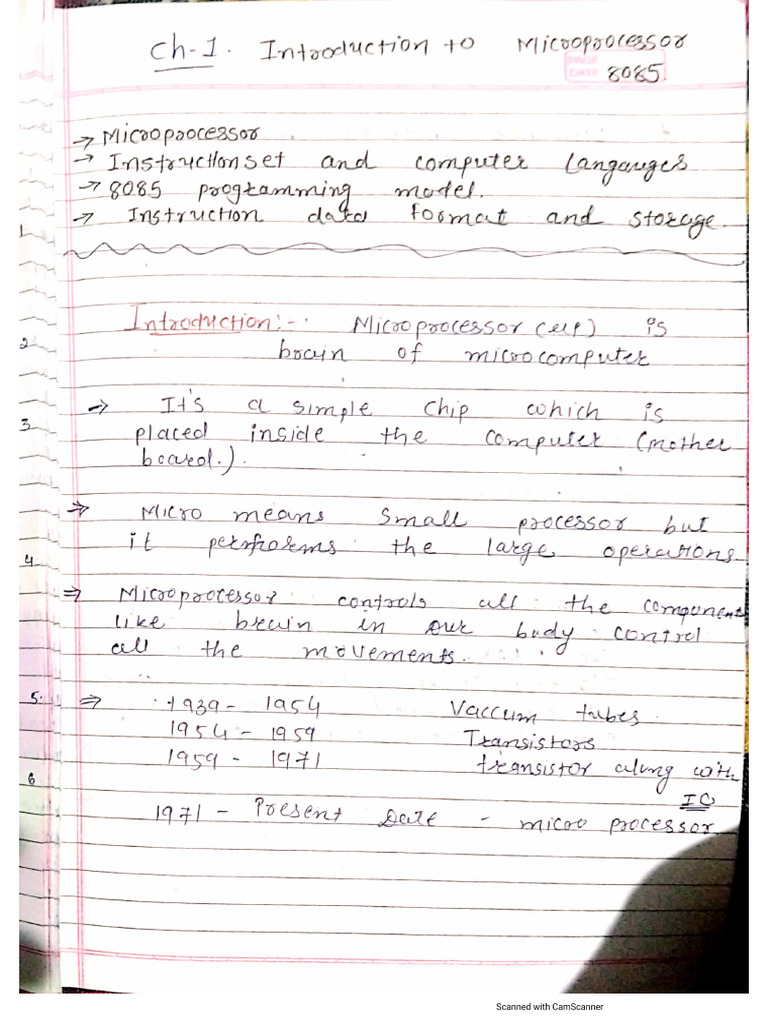 Ch-1. Introduction to Microprocessor
PAGE
DATE 8085
→ Microprocessor
→ Instruction set and computer Langauges
→ 8085 programming model.
→ Instruction data format and storage.
1
Introduction:-. Microprocessor (μp) is
2
brain of microcomputer
→ It's a simple chip which is
3
placed inside the computer (mother
board.).
⇒ Micro means small processor but
it performs the large operations
4
⇒ Microprocessor controls all the components
like brain in our body control
all the movements.
5. ⇒ 1939 - 1954 Vaccum tubes
1954 - 1959 Transistors
1959 - 1971 transistor along with
6
IC
1971 - Present Date - micro processor.
Scanned with CamScanner